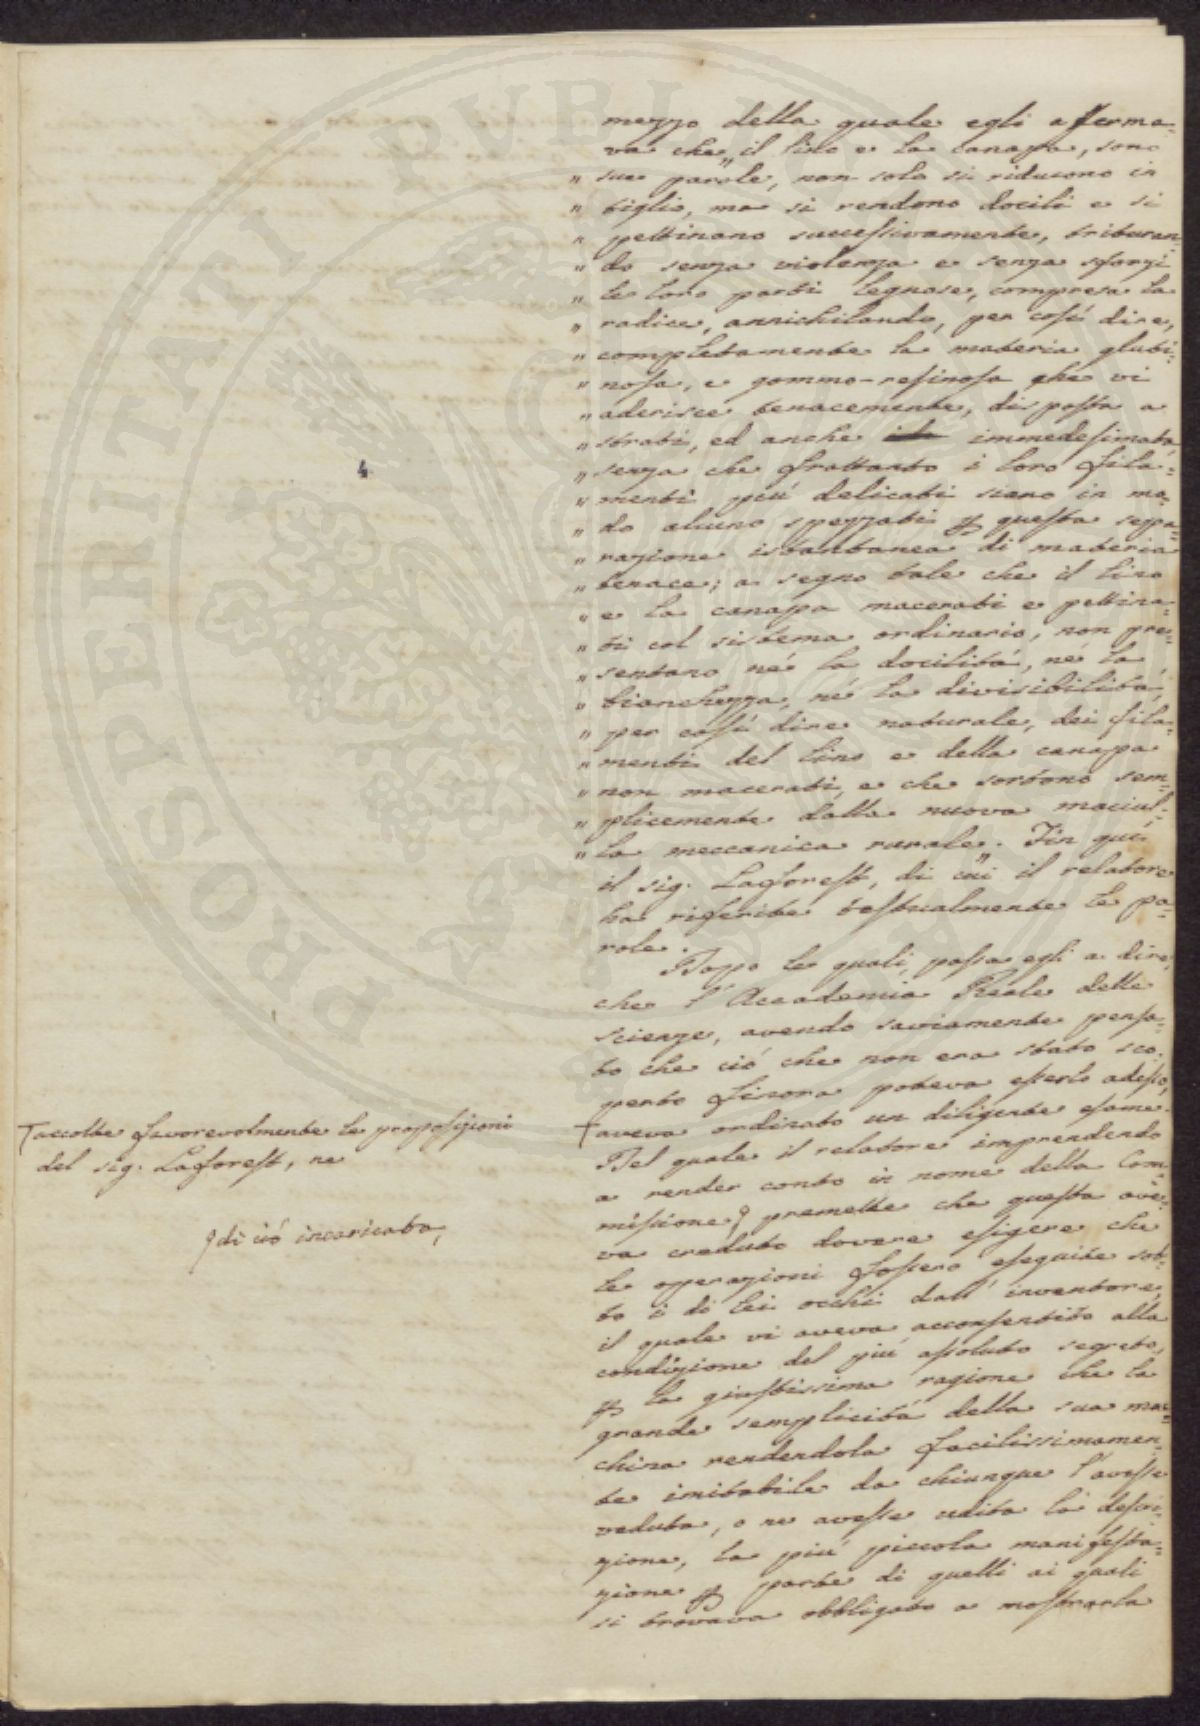 mezzo della quale egli afferma-
va che „ il lino e la canapa, sono
„ sue parole, non solo si riducono in
„ tiglio, ma si rendono docili e si
„ pettinano successivamente, trituran-
„ do senza violenza e senza sforzi
„ le loro parti legnose, compresa la
„ radice, annichilando, per così dire,
„ completamente la materia gluti-
„ nosa, e gommo-resinosa che vi
„ aderisce tenacemente, disposta a
„ strati, ed anche immedesimata,
„ senza che frattanto i loro fila-
„ menti più delicati siano in mo-
„ do alcuno spezzati p questa sepa-
„ razione istantanea di materia
„ tenace; a segno tale che il lino
„ e la canapa macerati e pettina-
„ ti col sistema ordinario, non pre-
„ sentano né la docilità, né la
„ bianchezza, né la divisibilità,
„ per così dire naturale, dei fila-
„ menti del lino e della canapa
„ non macerati, e che sortono sem-
„ plicemente dalla nuova maciul-
„ la meccanica rurale. „ Fin qui
il sig. Laforest, di cui il relatore
ha riferite testualmente le pa-
role.
Dopo le quali, passa egli a dire,
che l'Accademia Reale delle
scienze, avendo saviamente pensa-
to che ciò che non era stato sco-
perto finora poteva esserlo adesso,
aveva ordinato un diligente esame.
Del quale il relatore imprendendo
a render conto in nome della Com-
missione, premette che questa ave-
va creduto dovere esigere che
le operazioni fossero eseguite sot-
to i di lei occhi dall'inventore,
il quale vi aveva acconsentito alla
condizione del più assoluto segreto,
p la giustissima ragione che la
grande semplicità della sua mac-
china rendendola facilissimamen-
te imitabile da chiunque l'avesse
veduta, o ne avesse udita la descri-
zione, la più piccola manifesta-
zione p parte di quelli ai quali
si trovava obbligato a mostrarla
4
accolte favorevolmente le proposizioni
del sig. Laforest, ne
di ciò incaricata,
PROSPERITATI PUBLICAE